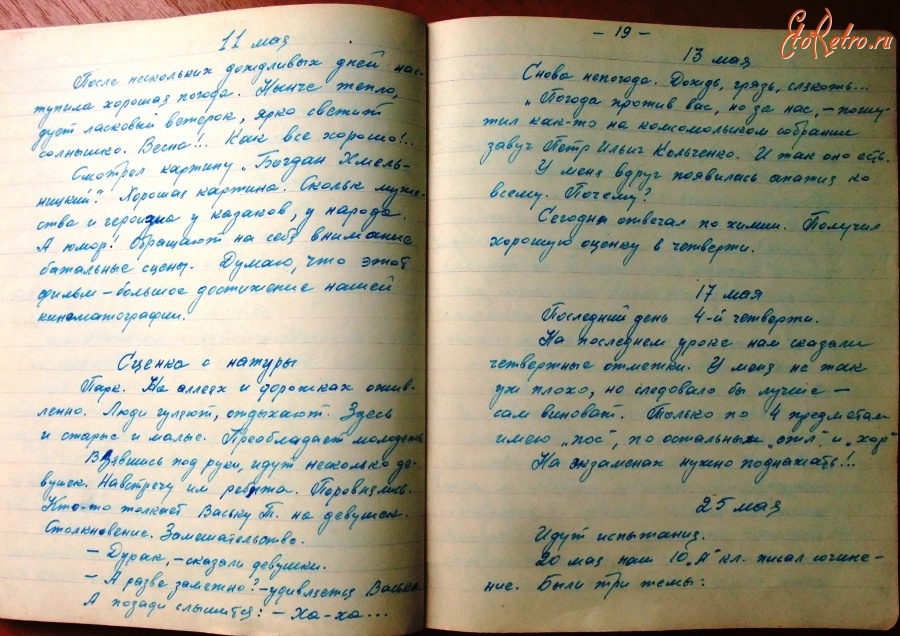 11 мая
После нескольких дождливых дней нас-
тупила хорошая погода. Нынче тепло,
дует ласковый ветерок, ярко светит
солнышко. Весна!!. Как все хорошо!..
Смотрел картину „Богдан Хмель-
ницкий". Хорошая картина. Сколько муже-
ства и героизма у казаков, у народа.
А юмор! Обращают на себя внимание
батальные сцены. Думаю, что этот
фильм – большое достижение нашей
кинематографии.
Сценка с натуры
Парк. На аллеях и дорожках ожив-
ленно. Люди гуляют, отдыхают. Здесь
и старые и малые. Преобладает молодежь
Взявшись под руки, идут несколько де-
вушек. Навстречу им ребята. Поровнялись.
Кто-то толкает Ваську Т. на девушек.
Столкновение. Замешательство.
– Дурак, – сказали девушки.
– А разве заметно? – удивляется Васька
А позади слышится: – Ха-ха...
– 19 –
13 мая
Снова непогода. Дождь, грязь, слякоть...
„Погода против вас, но за нас, – пошу-
тил как-то на комсомольском собрании
завуч Петр Ильич Кольченко. И так оно есть.
У меня вдруг появилась апатия ко
всему. Почему?
Сегодня отвечал по химии. Получил
хорошую оценку в четверти.
17 мая
Последний день 4-й четверти.
На последнем уроке нам сказали
четвертные отметки. У меня не так
уж плохо, но следовало бы лучше –
сам виноват. Только по 4 предметам
имею „пос", по остальным „отл" и „хор"
На экзаменах нужно поднажать!..
25 мая
Идут испытания.
20 мая наш 10 „А" кл. писал сочине-
ние. Были три темы:
EtoRetro.ru